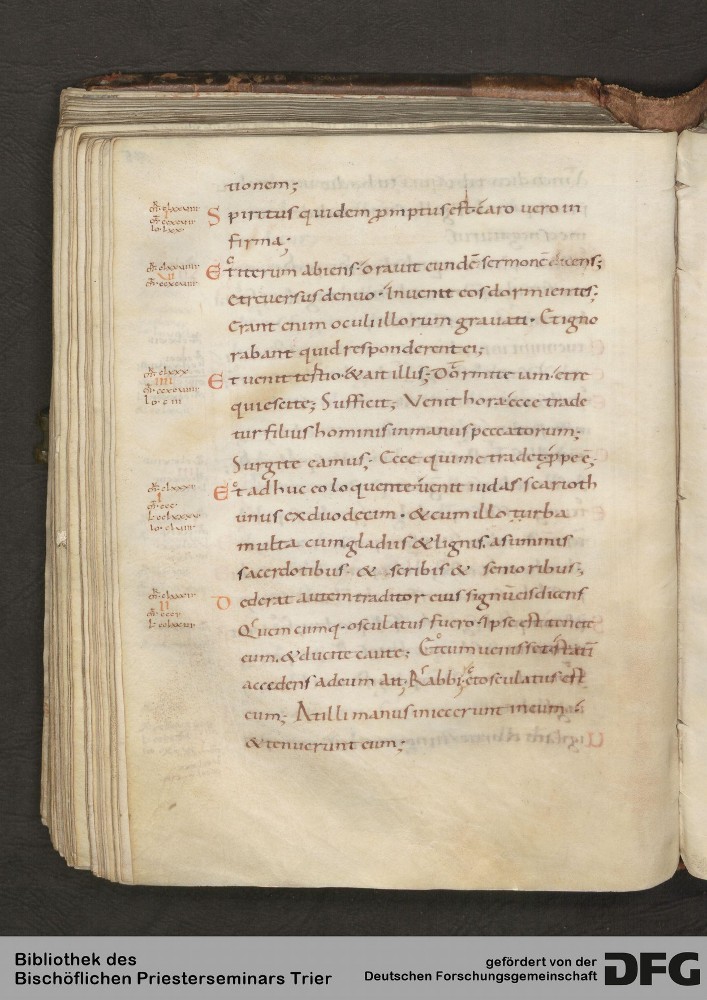 tionem;
Spiritus quidem promptus est· caro vero in
firma;
Et iterum abiens· oravit eundē sermonē dicens;
et reversus denuo· Invenit eos dormientes;
Erant enim oculi illorum gravati· Et igno
rabant quid responderent ei;
Et venit tertio· & ait illis; Dormite iam· et re
quiescite; Sufficit; Venit hora· ecce trade
tur filius hominis in manus peccatorum;
Surgite eamus; Ecce qui me tradet· ꝓpe ē;
Et adhuc eo loquente· venit iudas scarioth
unus ex duodecim· & cum illo turba
multa cum gladiis & lignis· a summis
sacerdotibus· & scribis & senioribus;
Dederat autem traditor eius signū eis dicens
Quemcumq· osculatus fuero· Ipse est· tenete
eum· & ducite caute; Et cum venisset· statī
accedens ad eum ait; Rabbi; et osculatus est
eum; At illi manus iniecerunt in eum·
& tenuerunt eum;
Bibliothek des
Bischöflichen Priesterseminars Trier
gefördert von der
Deutschen Forschungsgemeinschaft
DFG